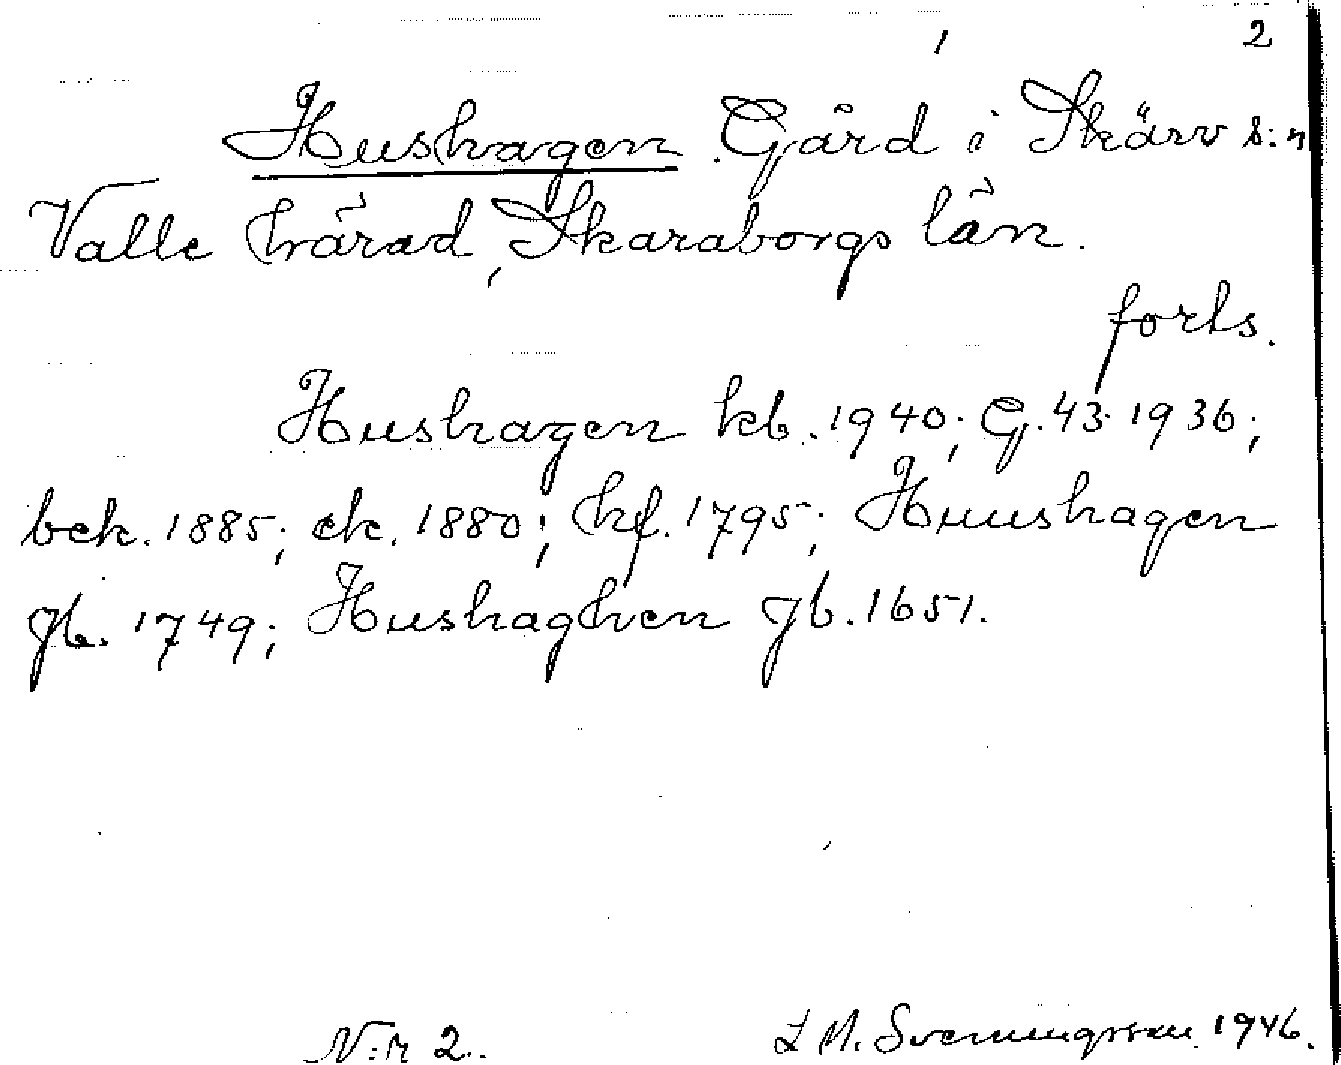 1 2
Hushagen. Gård i Skärv s:n
Valle härad, Skaraborgs län.
forts.
Hushagen kb. 1940; G. 43 1936;
bek. 1885; ek. 1880; hf. 1795; Huushagen
jb. 1749; Hushaghen jb. 1651.
N:r 2. L M. Svenningsson 1946.